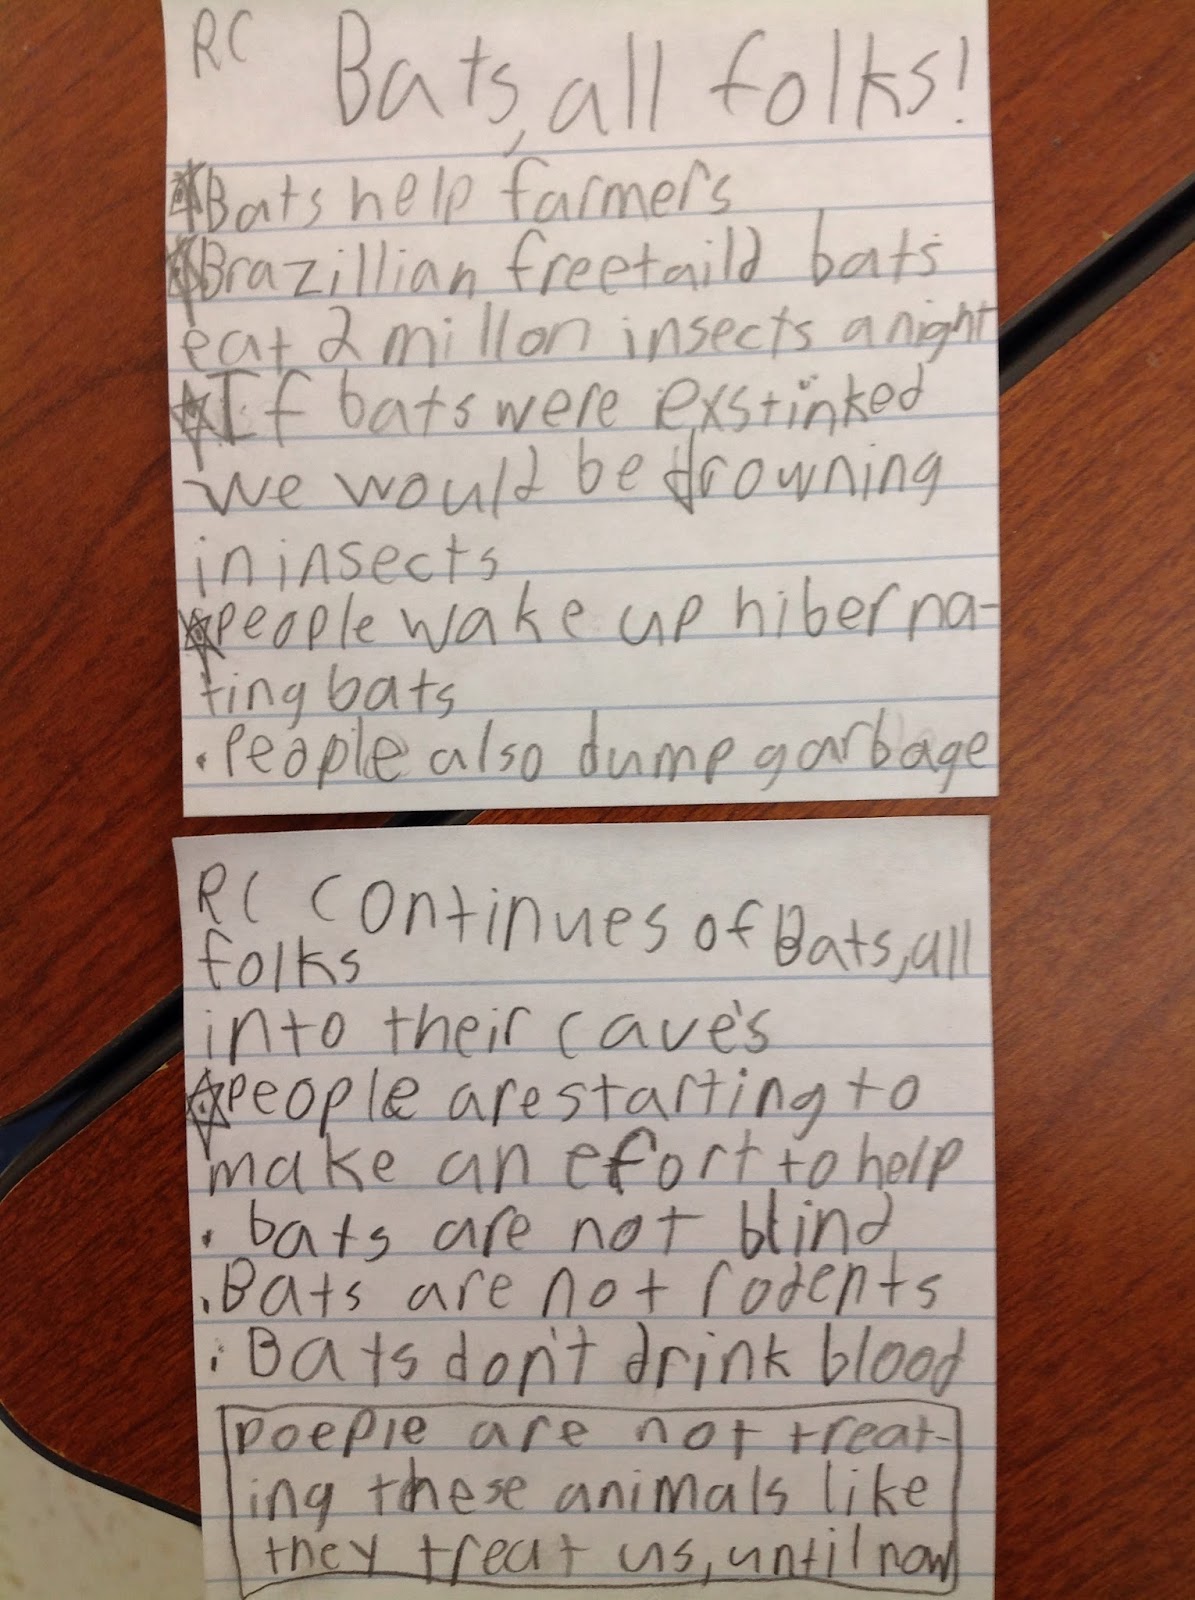 RC Bats, all folks!
Bats help farmers
Brazillian freetaild bats
eat 2 millon insects a night
If bats were exstinked
we would be drowning
in insects
people wake up hiberna-
ting bats
. People also dump garbage
RC Continues of Bats, all
folks
into their cave's
people are starting to
make an efort to help
. bats are not blind
. Bats are not rodents
. Bats don't drink blood
poeple are not treat-
ing these animals like
they treat us, until now